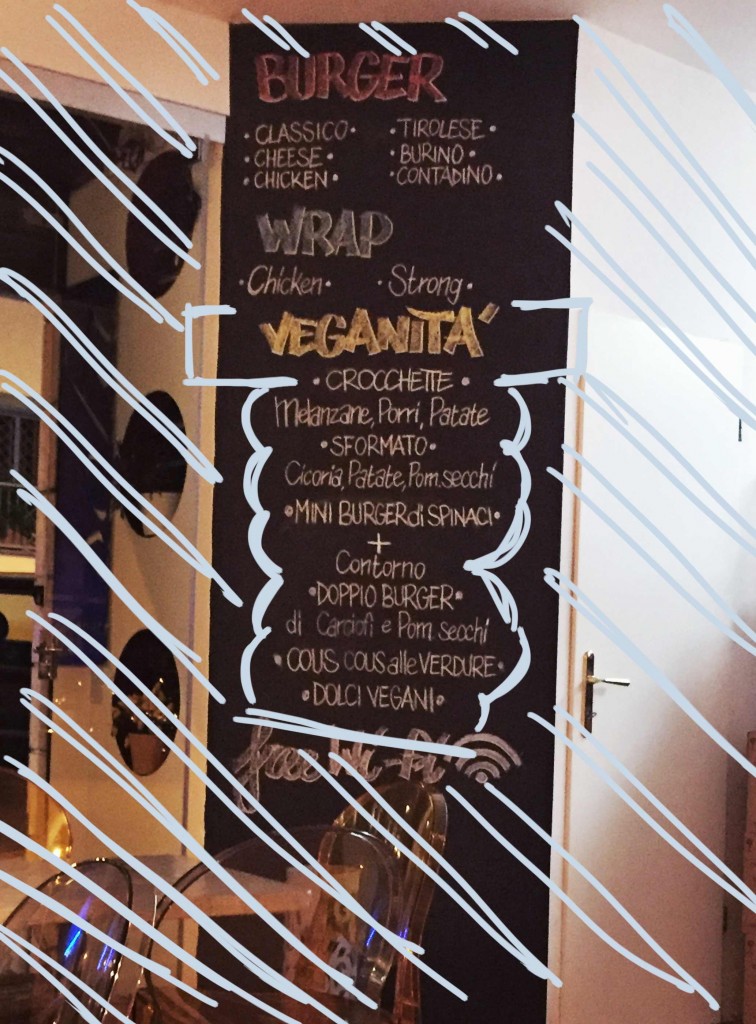 BURGER
• CLASSICO • • TIROLESE •
• CHEESE • • BURINO •
• CHICKEN • • CONTADINO •
WRAP
• Chicken • • Strong •
VEGANITA'
• CROCCHETTE •
Melanzane, Porri, Patate
• SFORMATO •
Cicoria, Patate, Pom. secchi
• MINI BURGER di SPINACI •
+
Contorno
• DOPPIO BURGER •
di Carciofi e Pom. secchi
• COUS COUS alle VERDURE •
• DOLCI VEGANI •
free Wi-Fi